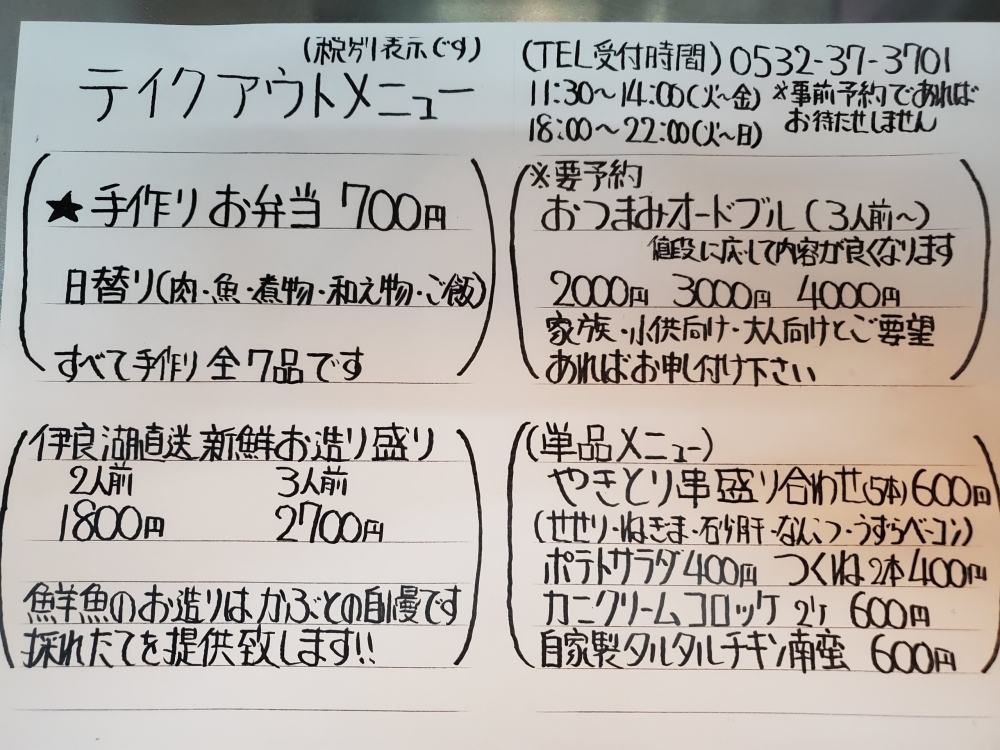 (税別表示です)
テイクアウトメニュー
(TEL受付時間) 0532-37-3701
11:30～14:00(火～金)
18:00～22:00(火～日)
※事前予約であれば
お待たせしません
★手作りお弁当 700円
日替り(肉・魚・煮物・和え物・ご飯)
すべて手作り全7品です
※要予約
おつまみオードブル(3人前～)
値段に応じて内容が良くなります
2000円 3000円 4000円
家族・小供向け・大人向けとご要望
あればお申し付け下さい
伊良湖直送新鮮お造り盛り
2人前 3人前
1800円 2700円
鮮魚のお造りはかぶとの自慢です
採れたてを提供致します!!
(単品メニュー)
やきとり串盛り合わせ(5本)600円
(せせり・ねぎま・石少肝・なんこつ・うずらベーコン)
ポテトサラダ400円 つくね2本400円
カニクリームコロッケ 2ケ 600円
自家製タルタルチキン南蛮 600円